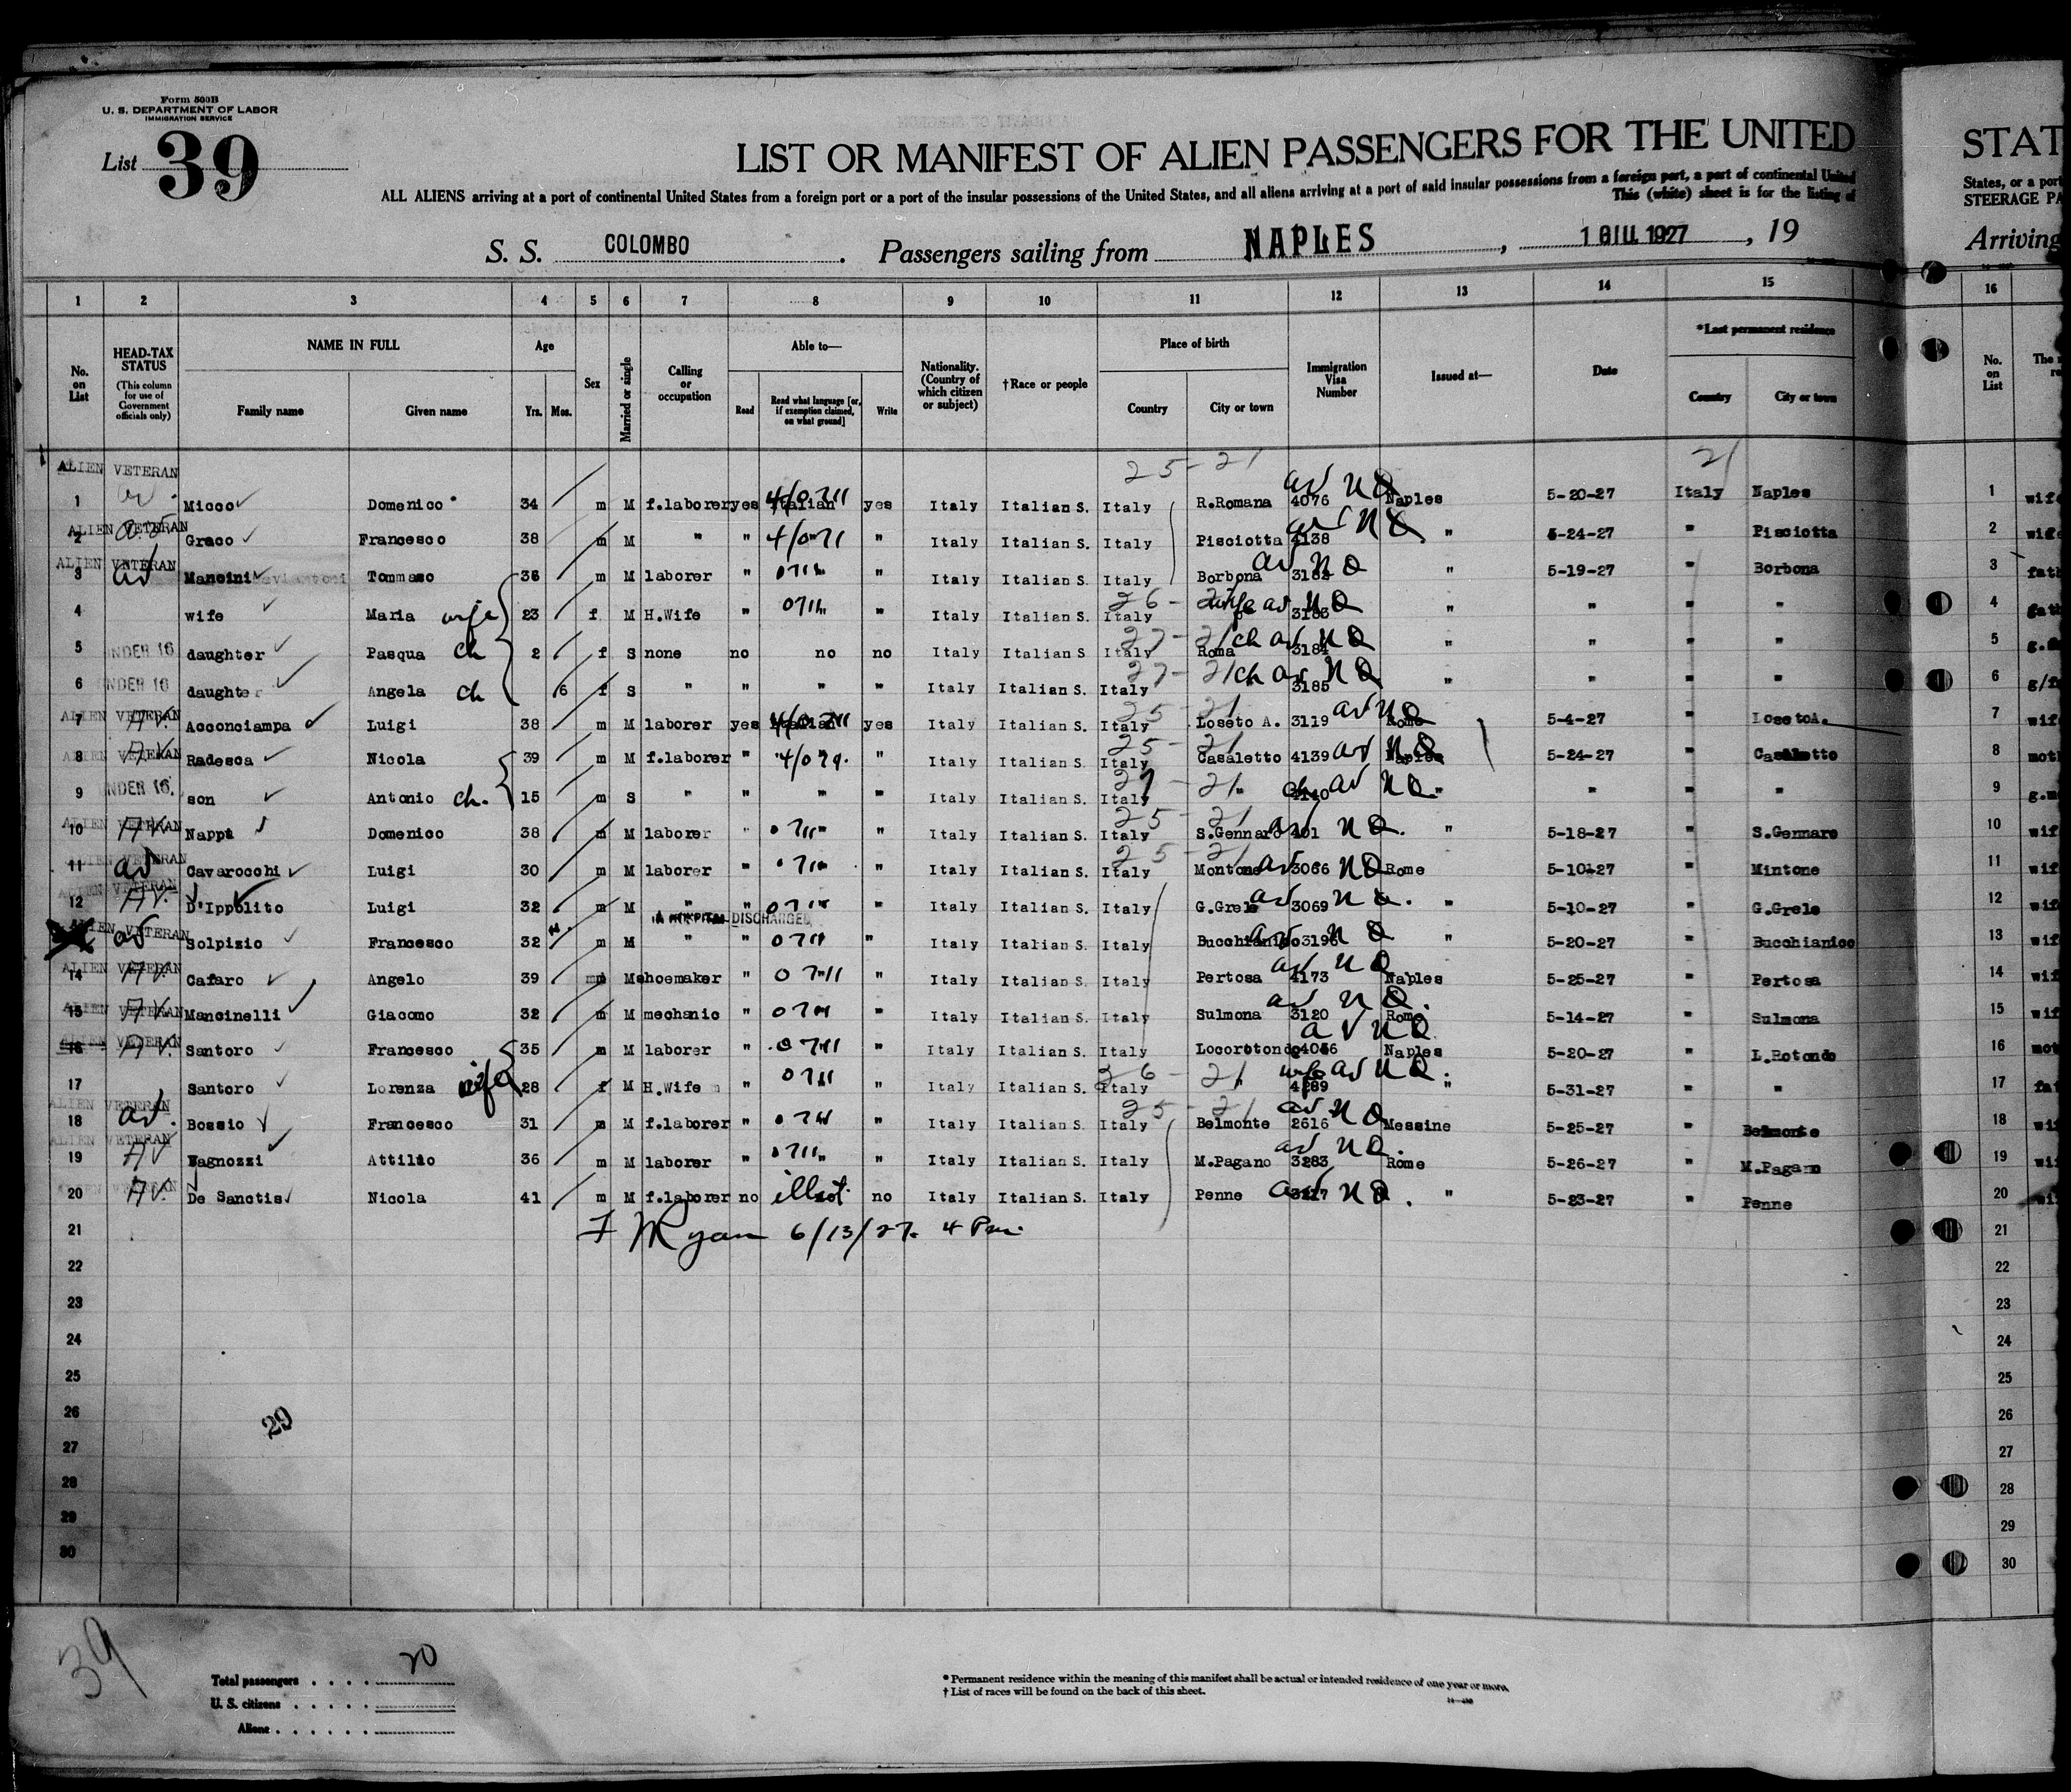 Form 500B
U. S. DEPARTMENT OF LABOR
IMMIGRATION SERVICE
List 39
LIST OR MANIFEST OF ALIEN PASSENGERS FOR THE UNITED
ALL ALIENS arriving at a port of continental United States from a foreign port or a port of the insular possessions of the United States, and all aliens arriving at a port of said insular possessions from a foreign port, a port of continental United
This (white) sheet is for the listing of
S. S. COLOMBO . Passengers sailing from NAPLES , 1 GIU. 1927 , 19
STAT
States, or a port
STEERAGE PA
Arriving
1 2 3 4 5 6 7 8 9 10 11 12 13 14 15 16
No. on List
HEAD-TAX STATUS (This column for use of Government officials only)
NAME IN FULL Family name Given name
Age Yrs. Mos.
Sex
Married or single
Calling or occupation
Able to— Read Read what language [or, if exemption claimed, on what ground] Write
Nationality. (Country of which citizen or subject)
†Race or people
Place of birth Country City or town
Immigration Visa Number
Issued at—
Date
*Last permanent residence Country City or town
No. on List
ALIEN VETERAN 25-21 21
1 Micco Domenico 34 m M f.laborer yes Italian yes Italy Italian S. Italy R.Romana 4076 av NQ Naples 5-20-27 Italy Naples 1 wife
ALIEN VETERAN
2 Greco Francesco 38 m M " " " Italy Italian S. Italy Pisciotta 4138 av NQ " 5-24-27 " Pisciotta 2 wife
ALIEN VETERAN
3 Mancini Tommaso 36 m M laborer " " Italy Italian S. Italy Borbona av NQ " 5-19-27 " Borbona 3 fath
4 wife Maria wife 23 f M H.Wife " " Italy Italian S. Italy 26- wife av NQ 3183 " " " " 4
5 UNDER 16 daughter Pasqua ch 2 f S none no no no Italy Italian S Italy 27-21 Roma ch av NQ 3184 " " " " 5
6 UNDER 16 daughter Angela ch 6 f S " " " " Italy Italian S. Italy 27-21 ch av NQ 3185 " " " " 6 g/f
ALIEN VETERAN
7 Acconciampa Luigi 38 m M laborer yes Italian yes Italy Italian S. Italy 25-21 Loseto A. 3119 av NQ Rome 5-4-27 " Loseto A. 7 wif
ALIEN VETERAN
8 Radesca Nicola 39 m M f.laborer " " Italy Italian S. Italy 25-21 Casaletto 4139 av NQ Naples 5-24-27 " Casaletto 8 mot
9 UNDER 16. son Antonio ch. 15 m S " " " " Italy Italian S. Italy 27-21 " ch av NQ. 4140 " " " " 9 g.m
ALIEN VETERAN
10 Nappi Domenico 38 m M laborer " " Italy Italian S. Italy 25-21 S.Gennaro av NQ. " 5-18-27 " S.Gennaro 10 wif
ALIEN VETERAN
11 Cavarocchi Luigi 30 m M laborer " " Italy Italian S. Italy 25-21 Montone av 3066 NQ Rome 5-10-27 " Mintone 11 wif
ALIEN VETERAN
12 D'Ippolito Luigi 32 m M " " " Italy Italian S. Italy G.Grele av 3069 NQ. " 5-10-27 " G.Grele 12 wif
HOSPITAL DISCHARGED
ALIEN VETERAN
Solpizio Francesco 32 m M " " " Italy Italian S. Italy Bucchianico 3196 av NQ " 5-20-27 " Bucchianico 13 wif
ALIEN VETERAN
14 Cafaro Angelo 39 m M shoemaker " " Italy Italian S. Italy Pertosa 4173 av NQ Naples 5-25-27 " Pertosa 14 wif
ALIEN VETERAN
15 Mancinelli Giacomo 32 m M mechanic " " Italy Italian S. Italy Sulmona 3120 av NQ. Rome 5-14-27 " Sulmona 15 wif
ALIEN VETERAN
16 Santoro Francesco 35 m M laborer " " Italy Italian S. Italy Locorotondo av NQ Naples 5-20-27 " L.Rotondo 16 mot
17 Santoro Lorenza wife 28 f M H.Wife " " Italy Italian S. Italy 26-21 " wife av NQ. 4289 " 5-31-27 " " 17 fat
ALIEN VETERAN
18 Bossio Francesco 31 m M f.laborer " " Italy Italian S. Italy 25-21 Belmonte 2616 av NQ Messine 5-25-27 " Belmonte 18 wif
ALIEN VETERAN
19 Attilio 36 m M laborer " " Italy Italian S. Italy M.Pagano 3283 av NQ. Rome 5-26-27 " M.Pagano 19 wif
ALIEN VETERAN
20 De Sanctis Nicola 41 m M f.laborer no no Italy Italian S. Italy Penne av NQ. " 5-23-27 " Penne 20 wif
21 Ryan 6/13/27. 4 Pm. 21
22 22
23 23
24 24
25 25
26 29 26
27 27
28 28
29 29
30 30
39
Total passengers . . . . 20
U. S. citizens . . . . .
Aliens . . . . . .
* Permanent residence within the meaning of this manifest shall be actual or intended residence of one year or more.
† List of races will be found on the back of this sheet.